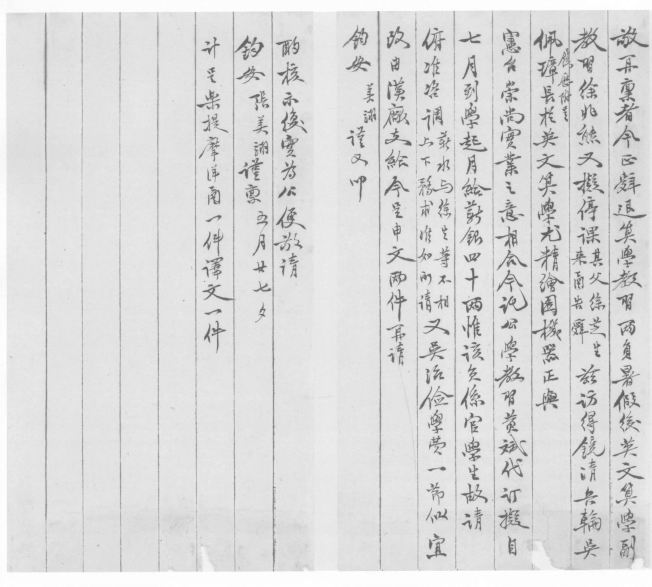 敬再禀者今正辭退算學教習兩員暑假後英文算學副
教習徐兆熊又擬停課其父徐芝生來函告辭茲訪得鏡清兵輪吳
佩璋履歷附呈長於英文算學尤精繪圖機器正與
憲台崇尚實業之意相合今託公學教習黃斌代訂擬自
七月到學起月給薪銀四十兩惟該員係官學生故請
俯准咨調薪水与徐生等不相上下務求准如所請又吳治儉學費一節似宜
改由漢廠支給今呈申文兩件再請
鈞安 美翊謹又叩
酌核示復實為公便敬請
鈞安 張美翊謹禀 五月廿七夕
計呈柴提摩洋函一件譯文一件